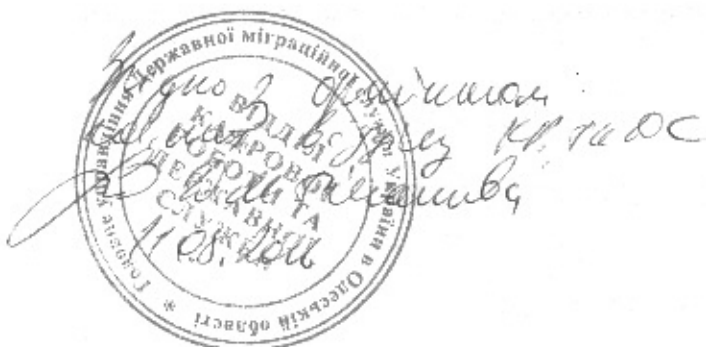 Головне управління Державної міграційної служби України в Одеській області *
ВІДДІЛ
КАДРОВОЇ
РОБОТИ ТА
ДЕРЖАВНОЇ
СЛУЖБИ
Згідно з оригіналом
відділу КР та ДС
11.08.2016